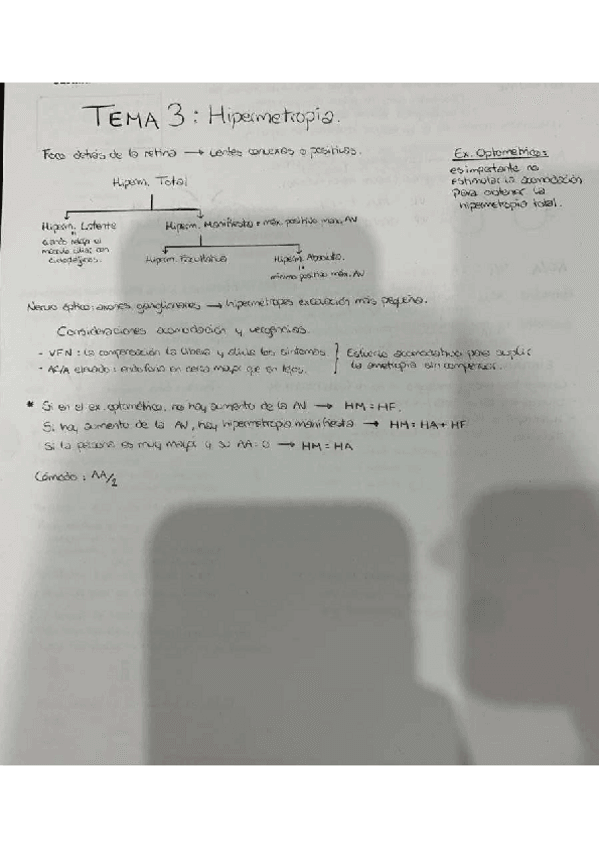 TEMA 3: Hipermetropia.
Foco detrás de la retina → Lentes convexas o positivas.
Ex. Optométrico:
es importante no
estimular la acomodación
para obtener la
hipermetropia total.
Hiperm. Total
Hiperm. Latente
Hiperm. Manifiesta = máx. positivo máx. AV
cuando relaja el
músculo ciliar con
Hiperm. Facultativa
Hiperm. Absoluta
mínimo positivo máx. AV
Nervio óptico: axones ganglionares → hipermétropes excavación más pequeña.
Consideraciones acomodación y vergencias.
- VFN: La compensación la libera y alivia los síntomas
- AC/A elevado: endoforia en cerca mayor que en lejos.
Esfuerzo acomodativo para suplir
la ametropia sin compensar.
* Si en el ex. optométrico, no hay aumento de la AV → HM = HF.
Si hay aumento de la AV, hay hipermetropia manifiesta → HM = HA + HF
Si la persona es muy mayor y su AA = 0 → HM = HA
Cómodo: AA/2